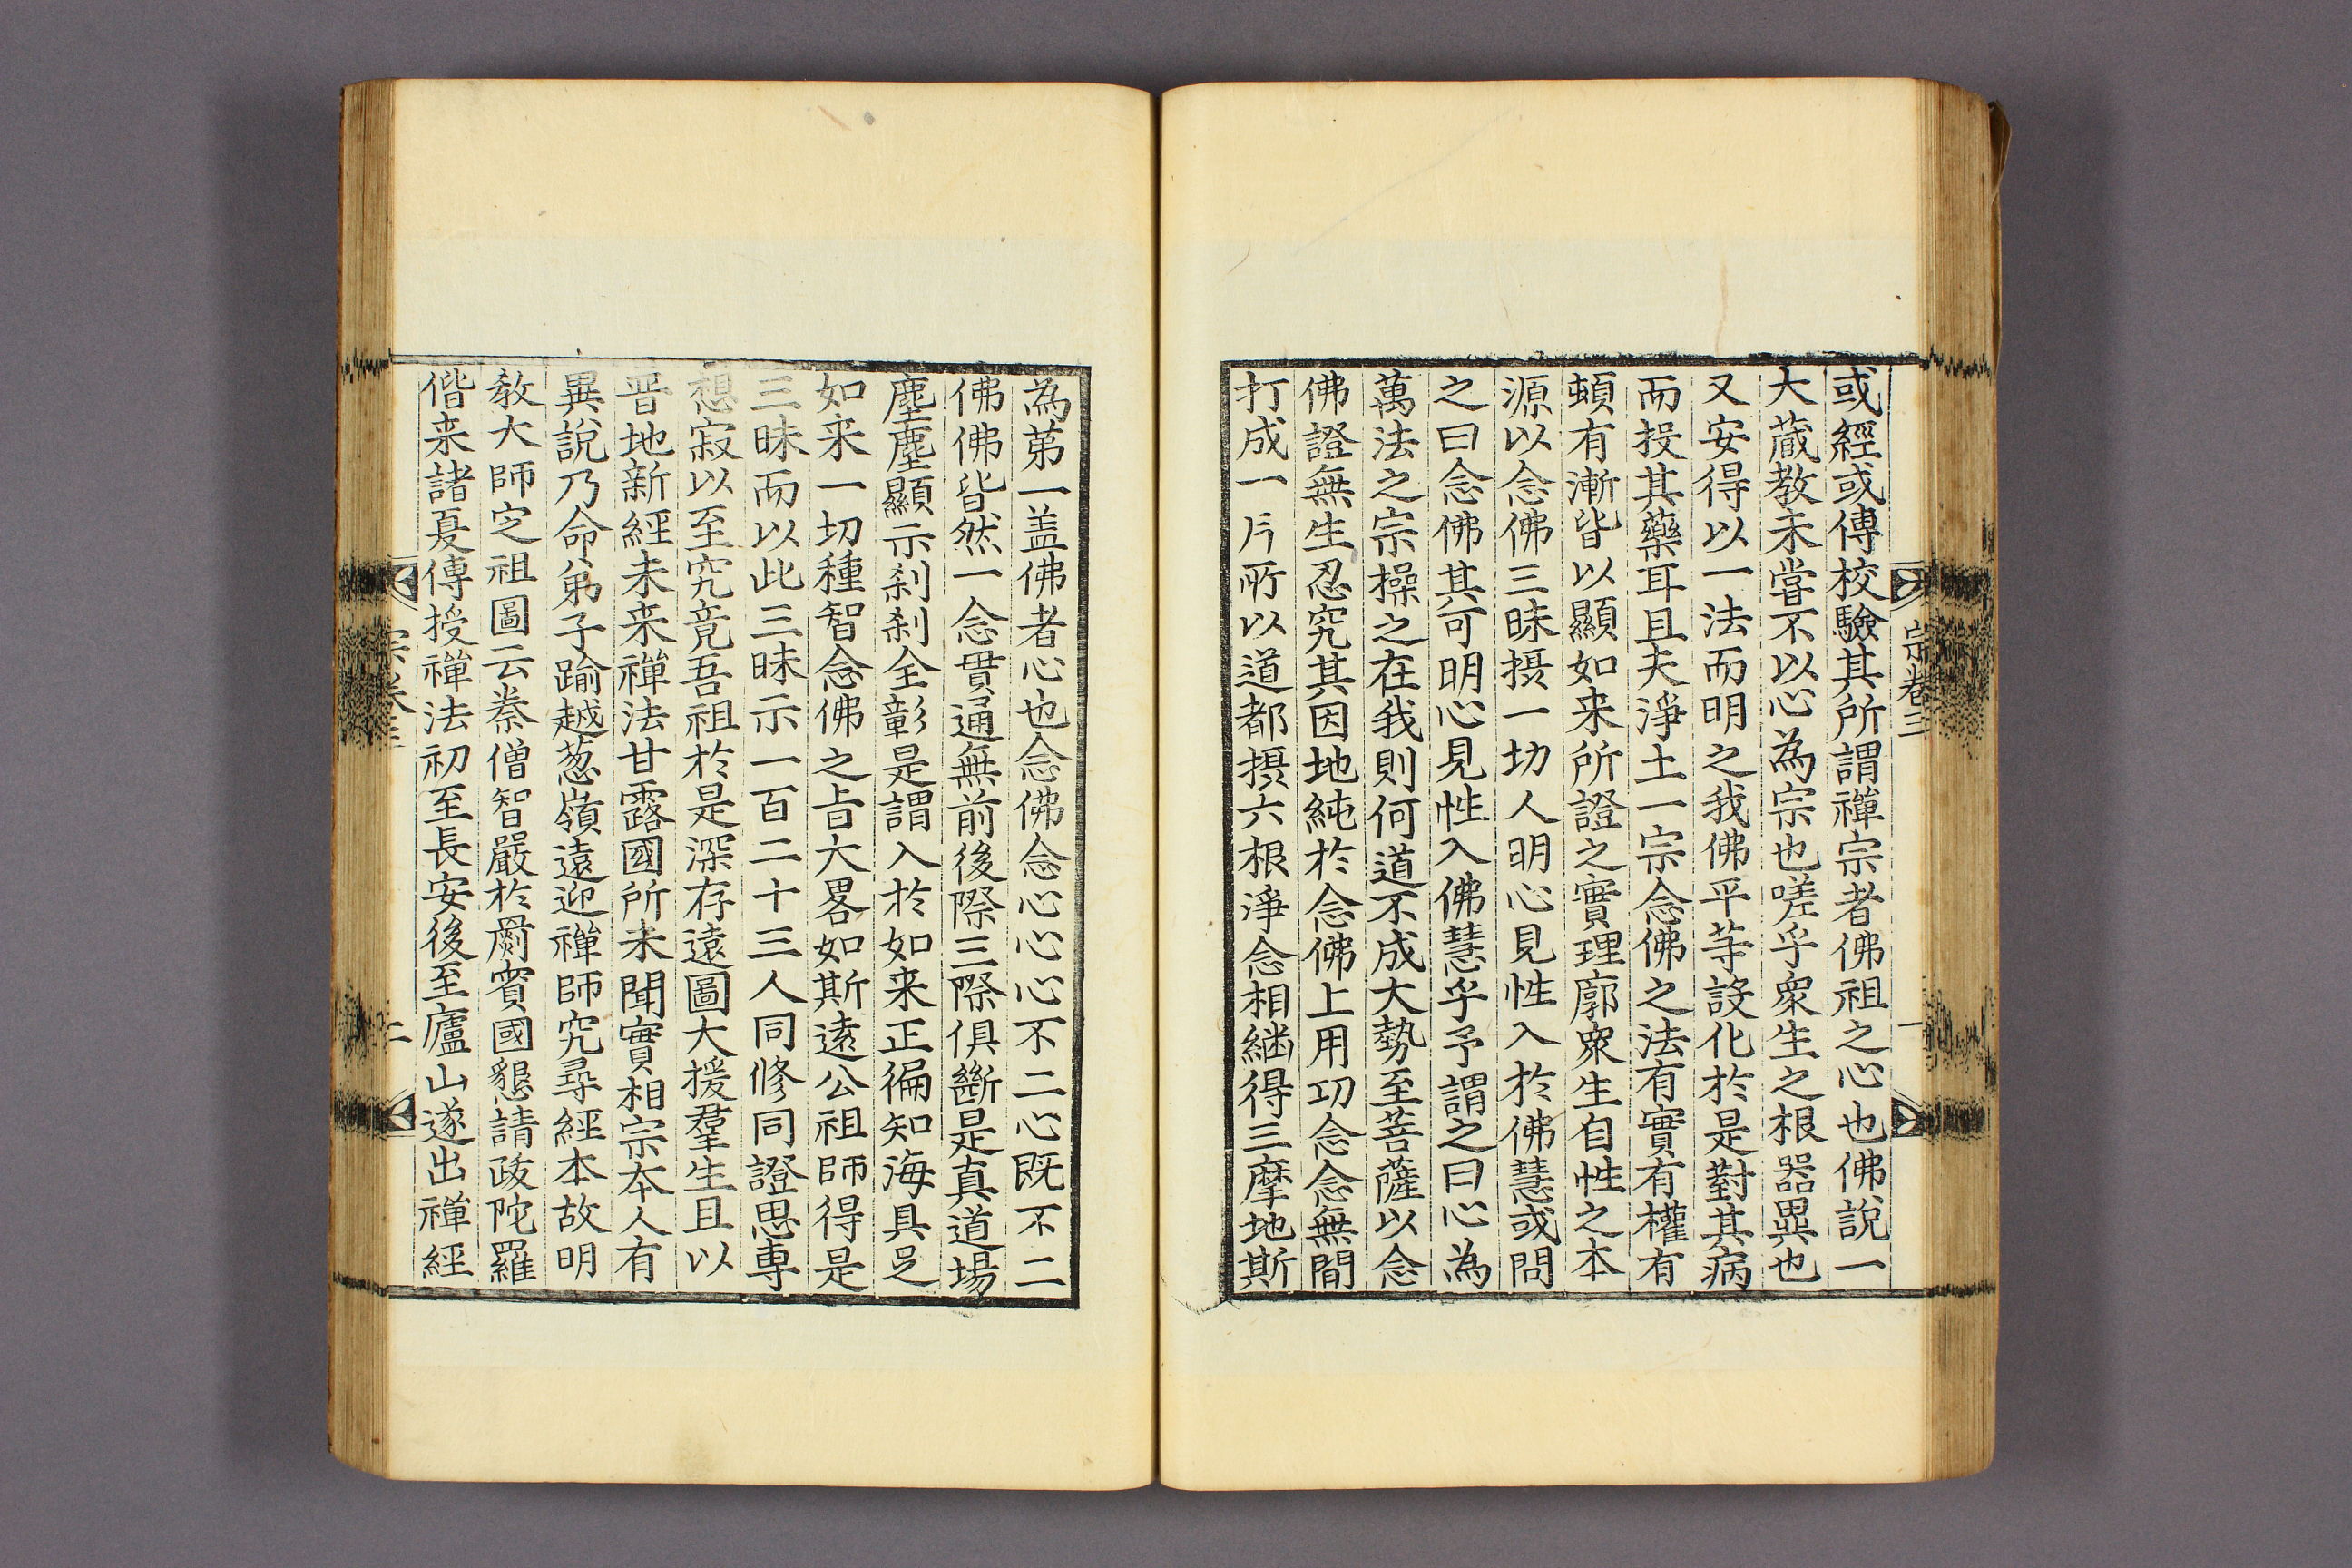 或經或傳校驗其所謂禪宗者佛祖之心也佛說一
大蔵教未嘗不以心為宗也嗟乎衆生之根器異也
又安得以一法而明之我佛平等設化於是對其病
而投其藥耳且夫淨土一宗念佛之法有實有權有
頓有漸皆以顯如来所證之實理廓衆生自性之本
源以念佛三昧摂一切人明心見性入於佛慧或問
之曰念佛其可明心見性入佛慧乎予謂之曰心為
萬法之宗操之在我則何道不成大勢至菩薩以念
佛證無生忍究其因地純於念佛上用功念念無間
打成一片所以道都摂六根淨念相継得三摩地斯
宗卷三
一
為苐一盖佛者心也念佛念心心心不二心既不二
佛佛皆然一念貫通無前後際三際俱斷是真道場
塵塵顯示刹刹全彰是謂入於如来正徧知海具足
如来一切種智念佛之㫖大畧如斯遠公祖師得是
三昧而以此三昧示一百二十三人同修同證思專
想寂以至究竟吾祖於是深存遠圖大援羣生且以
晋地新經未来禪法甘露國所未聞實相宗本人有
異說乃命弟子踰越葱嶺遠迎禪師究尋經本故明
教大師定祖圖云秦僧智嚴於罽賓國懇請䟦陀羅
偕来諸夏傳授禪法初至長安後至廬山遂出禪經
宗卷三
二